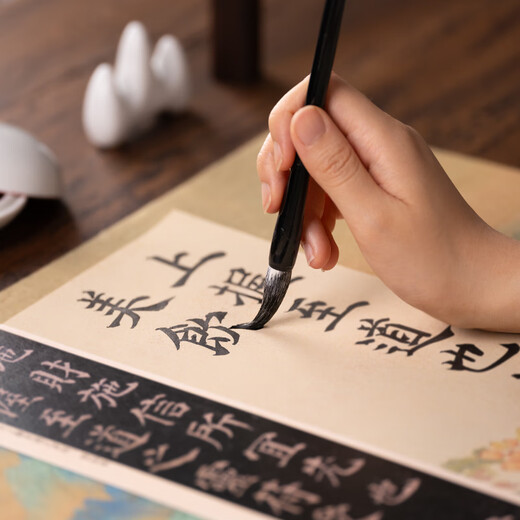 上振至道也
美
施財施信所宜光也
至道之靈符